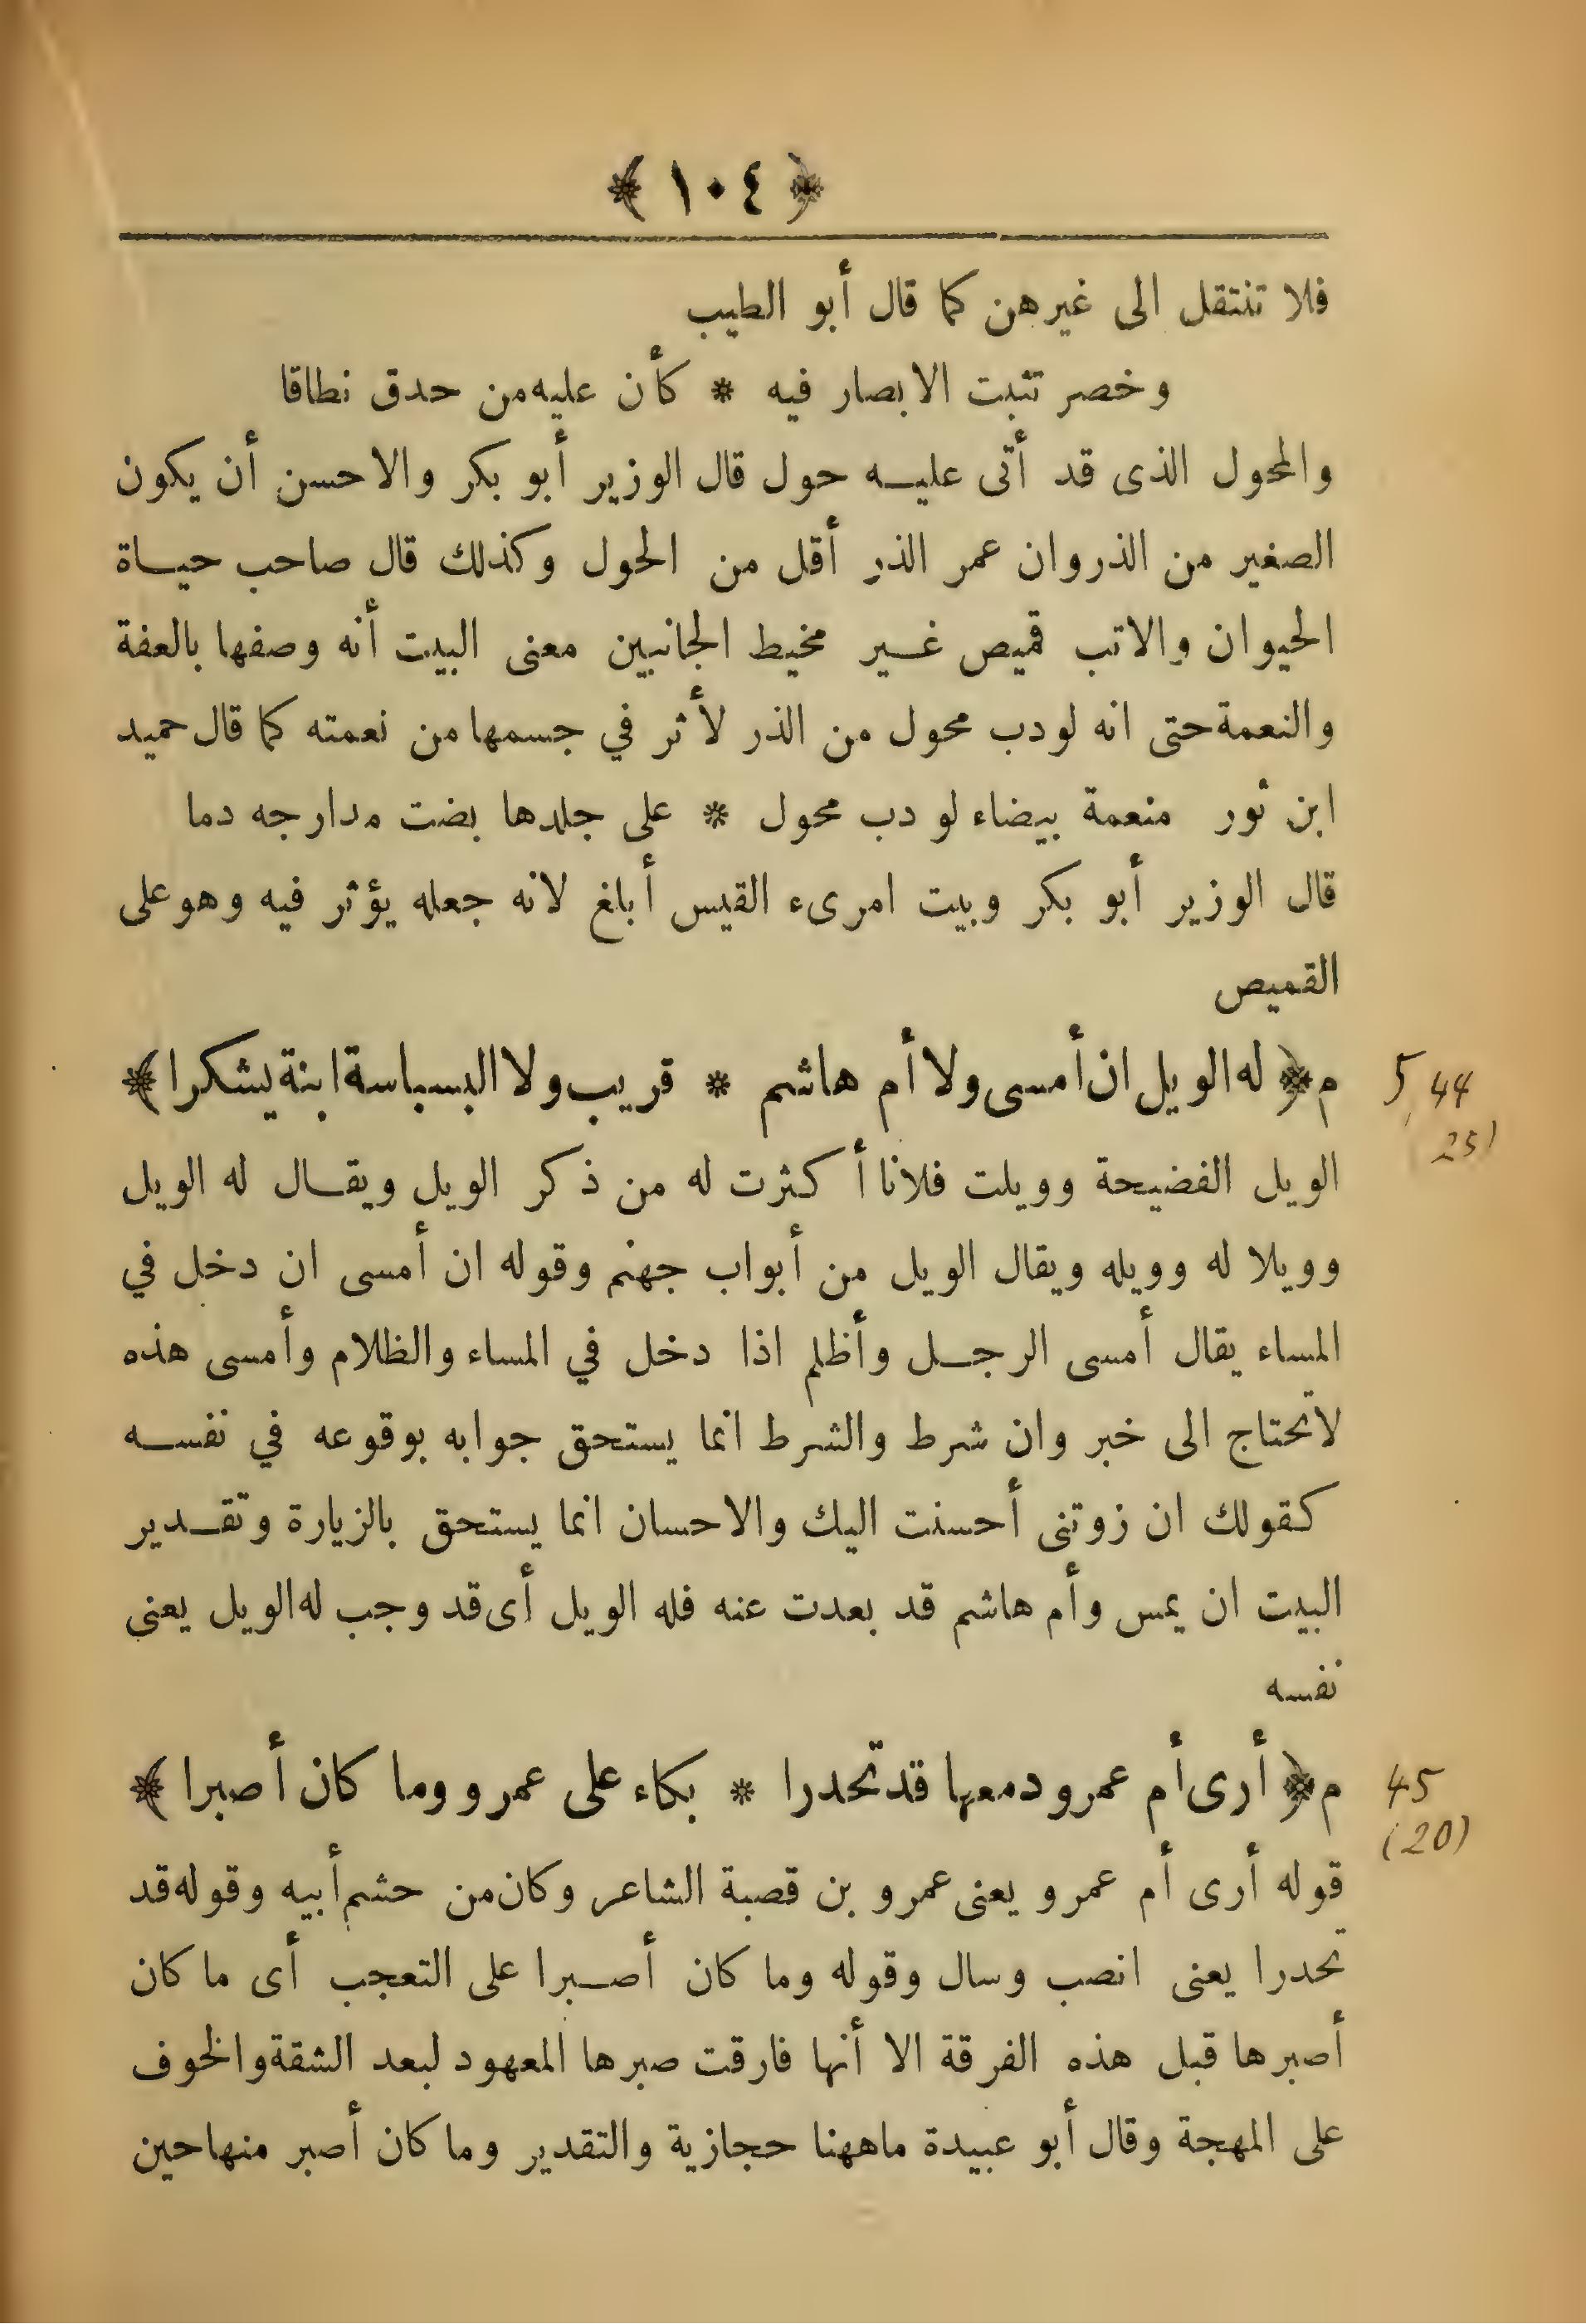 ﴿ ١٠٤ ﴾
فلا تنتقل الى غيرهن كما قال أبو الطيب
وخصر تثبت الابصار فيه * كأن عليه من حدق نطاقا
والمحول الذى قد أتى عليه حول قال الوزير أبو بكر والاحسن أن يكون
الصغير من الذر وان عمر الذر أقل من الحول وكذلك قال صاحب حياة
الحيوان والاتب قميص غير مخيط الجانبين معنى البيت أنه وصفها بالعفة
والنعمة حتى انه لودب محول من الذر لأثر في جسمها من نعمته كما قال حميد
ابن ثور منعمة بيضاء لو دب محول * على جلدها بضت مدارجه دما
قال الوزير أبو بكر وبيت امرىء القيس أبلغ لانه جعله يؤثر فيه وهو على
القميص
م ﴿ له الويل ان أمسى ولا أم هاشم * قريب ولا البسباسة ابنة يشكرا ﴾
5 44
25)
الويل الفضيحة وويلت فلانا أكثرت له من ذكر الويل ويقال له الويل
وويلا له وويله ويقال الويل من أبواب جهنم وقوله ان أمسى ان دخل في
المساء يقال أمسى الرجل وأظلم اذا دخل في المساء والظلام وأمسى هذه
لاتحتاج الى خبر وان شرط والشرط انما يستحق جوابه بوقوعه في نفسه
كقولك ان زوتنى أحسنت اليك والاحسان انما يستحق بالزيارة وتقدير
البيت ان يمس وأم هاشم قد بعدت عنه فله الويل أى قد وجب له الويل يعنى
نفسه
م ﴿ أرى أم عمرو دمعها قد تحدرا * بكاء على عمرو وما كان أصبرا ﴾
45
(20)
قوله أرى أم عمرو يعنى عمرو بن قصبة الشاعر وكان من حشم أبيه وقوله قد
تحدرا يعنى انصب وسال وقوله وما كان أصبرا على التعجب أى ما كان
أصبرها قبل هذه الفرقة الا أنها فارقت صبرها المعهود لبعد الشقة والخوف
على المهجة وقال أبو عبيدة ماههنا حجازية والتقدير وما كان أصبر منها حين